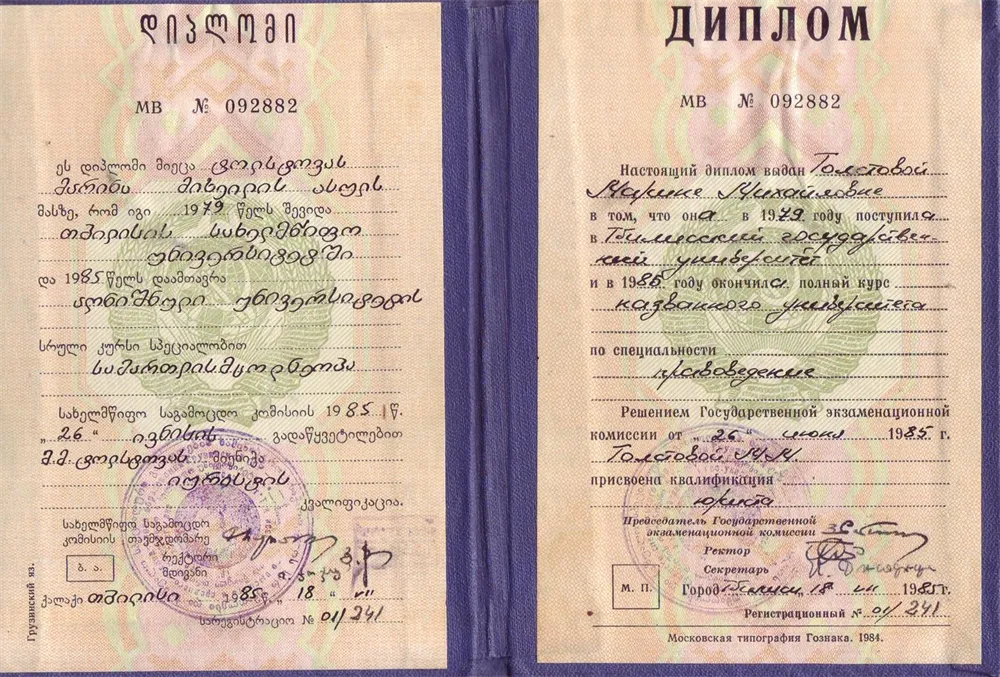 დიპლომი
МВ № 092882
ეს დიპლომი მიეცა ტოლსტოვას
მარინა მიხეილის ასულს
მასზე, რომ იგი 1979 წელს შევიდა
თბილისის სახელმწიფო
უნივერსიტეტში
და 1985 წელს დაამთავრა
აღნიშნული უნივერსიტეტის
სრული კურსი სპეციალობით
სამართლისმცოდნეობა
სახელმწიფო საგამოცდო კომისიის 1985 წ.
„ 26 “ ივნისის გადაწყვეტილებით
მ.მ. ტოლსტოვას მიენიჭა
იურისტის
კვალიფიკაცია.
სახელმწიფო საგამოცდო
კომისიის თავმჯდომარე
რექტორი
მდივანი
ბ. ა.
ქალაქი თბილისი 1985 წ. „ 18 “ VII
სარეგისტრაციო № 01/241
Грузинский яз.
ДИПЛОМ
МВ № 092882
Настоящий диплом выдан Толстовой
Марине Михайловне
в том, что она в 1979 году поступила
в Тбилисский государствен-
ный университет
и в 1985 году окончила полный курс
названного университета
по специальности
правоведение
Решением Государственной экзаменационной
комиссии от „ 26 “ июня 1985 г.
Толстовой М.М.
присвоена квалификация
юриста
Председатель Государственной
экзаменационной комиссии
Ректор
Секретарь
М. П.
Город Тбилиси, 18 VII 1985 г.
Регистрационный № 01/241
Московская типография Гознака. 1984.